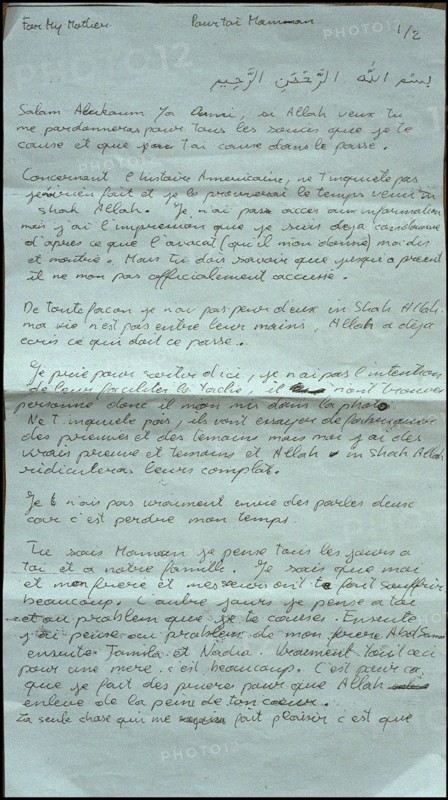 For My Mother Pour toi Mamman 1/2
بِسْمِ اللهِ الرَّحْمَنِ الرَّحِيمِ
Salam Alukaum Ya Ummi, si Allah veux tu
me pardonneras pour tous les soucis que je te
cause et que je t'ai cause dans le passe.
Concernant l'histoire Americaine, ne t'inquiete pas
je rien fait et je le prouverai le temps venu in
shah Allah. Je n'ai pas acces aux information
mais j'ai l'impression que je suis deja condamne
d'apres ce que l'avocat (qu'il m'on donne) m'a dit
et montre. Mais tu dois savoir que jusqu'a present
il ne mon pas officialement accuse.
De toute facon je n'ai pas peur d'eux in Shah Allah.
ma vie n'est pas entre leur mains, Allah a deja
ecris ce qui doit ce passe.
Je prie pour sortir d'ici, je n'ai pas l'intention
de leur faciliter la tache, il n'ont trouver
personne donc il mon mis dans la photo.
Ne t'inquiete pas, ils vont essayer de fabriquer
des preuves et des temoins mais moi j'ai des
vrais preuve et temoins et Allah in Shah Allah
ridiculisera leurs complot.
Je n'ais pas vraiment envie des parler deux
car c'est perdre mon temps.
Tu sais Maman je pense tous les jours a
toi et a notre famille. Je sais que moi
et mon frere et mes soeur ont te fait souffrir
beaucoup. L'autre jours je pense a toi
et au problem que je te causer. Ensuite
j'ai pense au problem de mon frere Abd
ensuite Jamila et Nadia. Vraiment tout ceci
pour une mere c'est beaucoup. C'est pour ca
que je fait des priere pour que Allah
enleve de la peine de ton coeur.
La seule chose qui me fait plaisir c'est que
PHOTO12